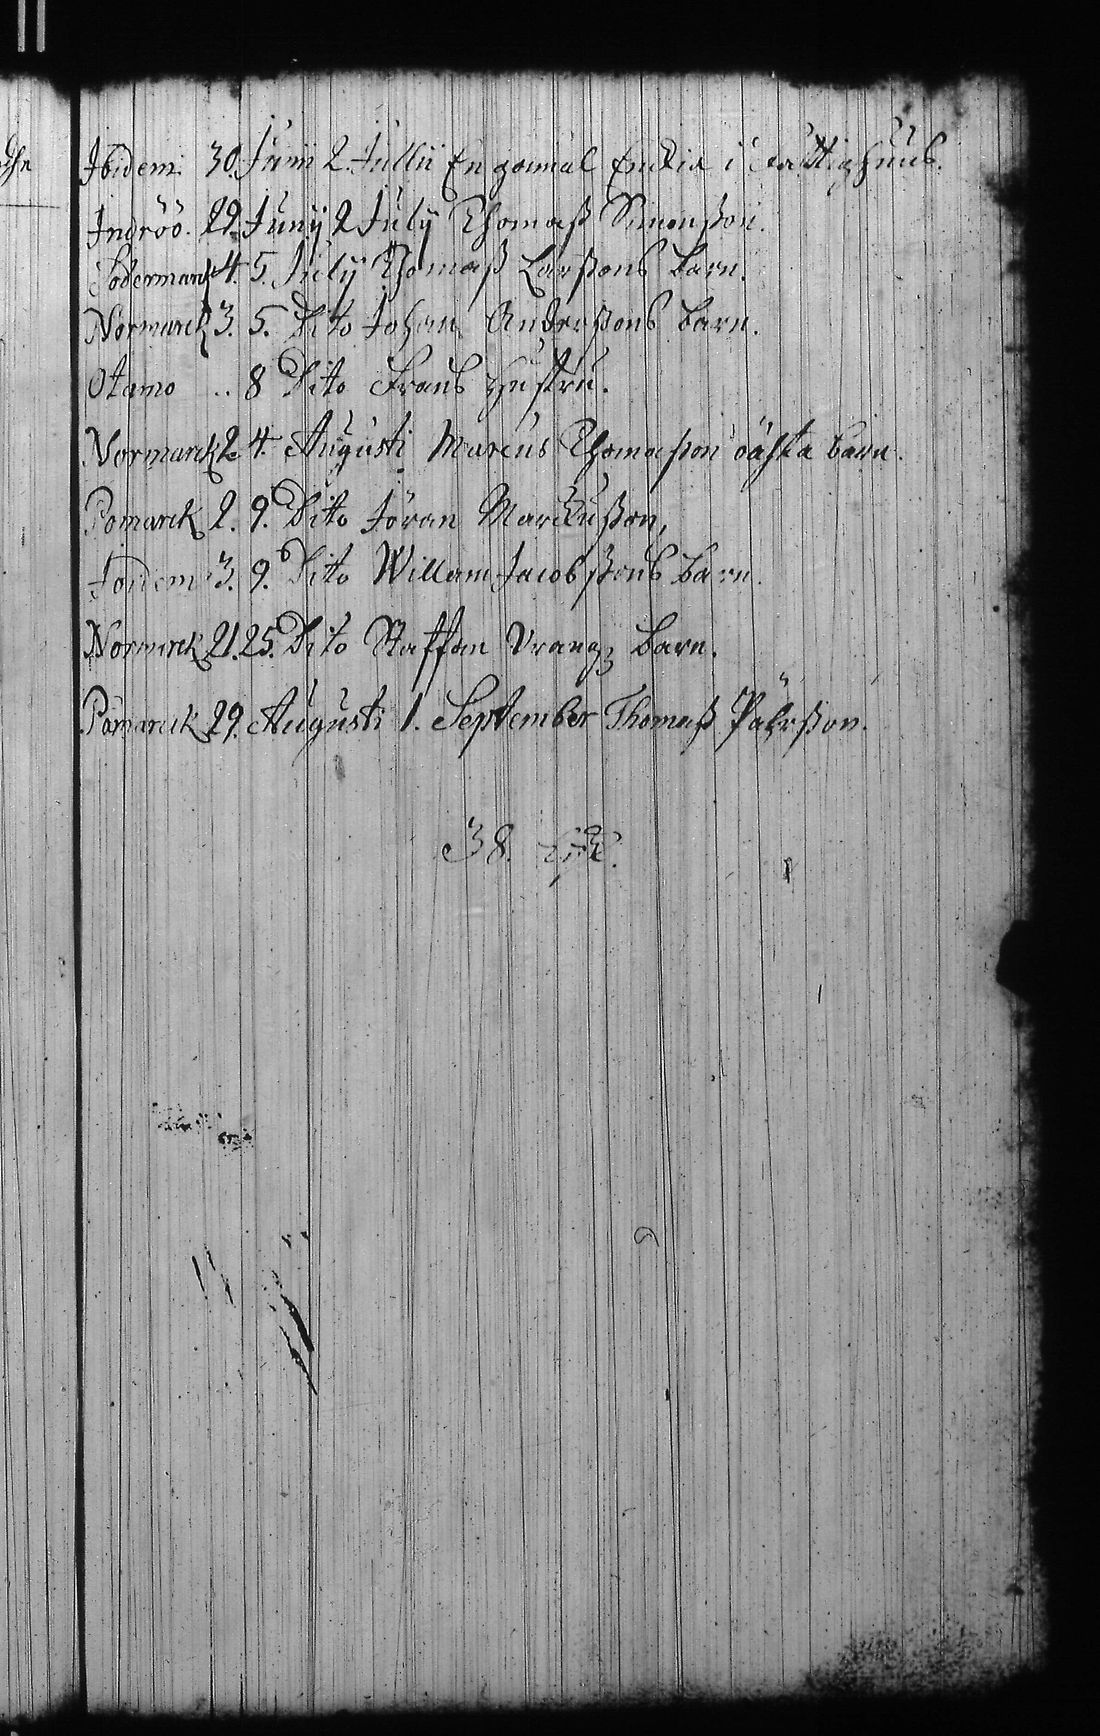 Ibidem. 30. Junii 2. Jullii En gamal Enckia i Fattighuus.
Indröö. 29. Junÿ 2 Julÿ Thomaß Simonßon.
Södermarck 4. 5. Julÿ Thomaß Larßons barn.
Normarck 3. 5. Dito Johan Anderßons barn.
Otamo .. 8 Dito Frans Hustru.
Normarck 2. 4. Augusti Marcus Thomaßon barn.
Pomarck 2. 9. Dito Jöran Marckußon,
3. 9. Dito Willam Jacobßons barn.
Normrck 21. 25. Dito Staffan Vrangz barn.
Pomarck 29. Augusti 1. September Thomaß Påhrßon.
38.